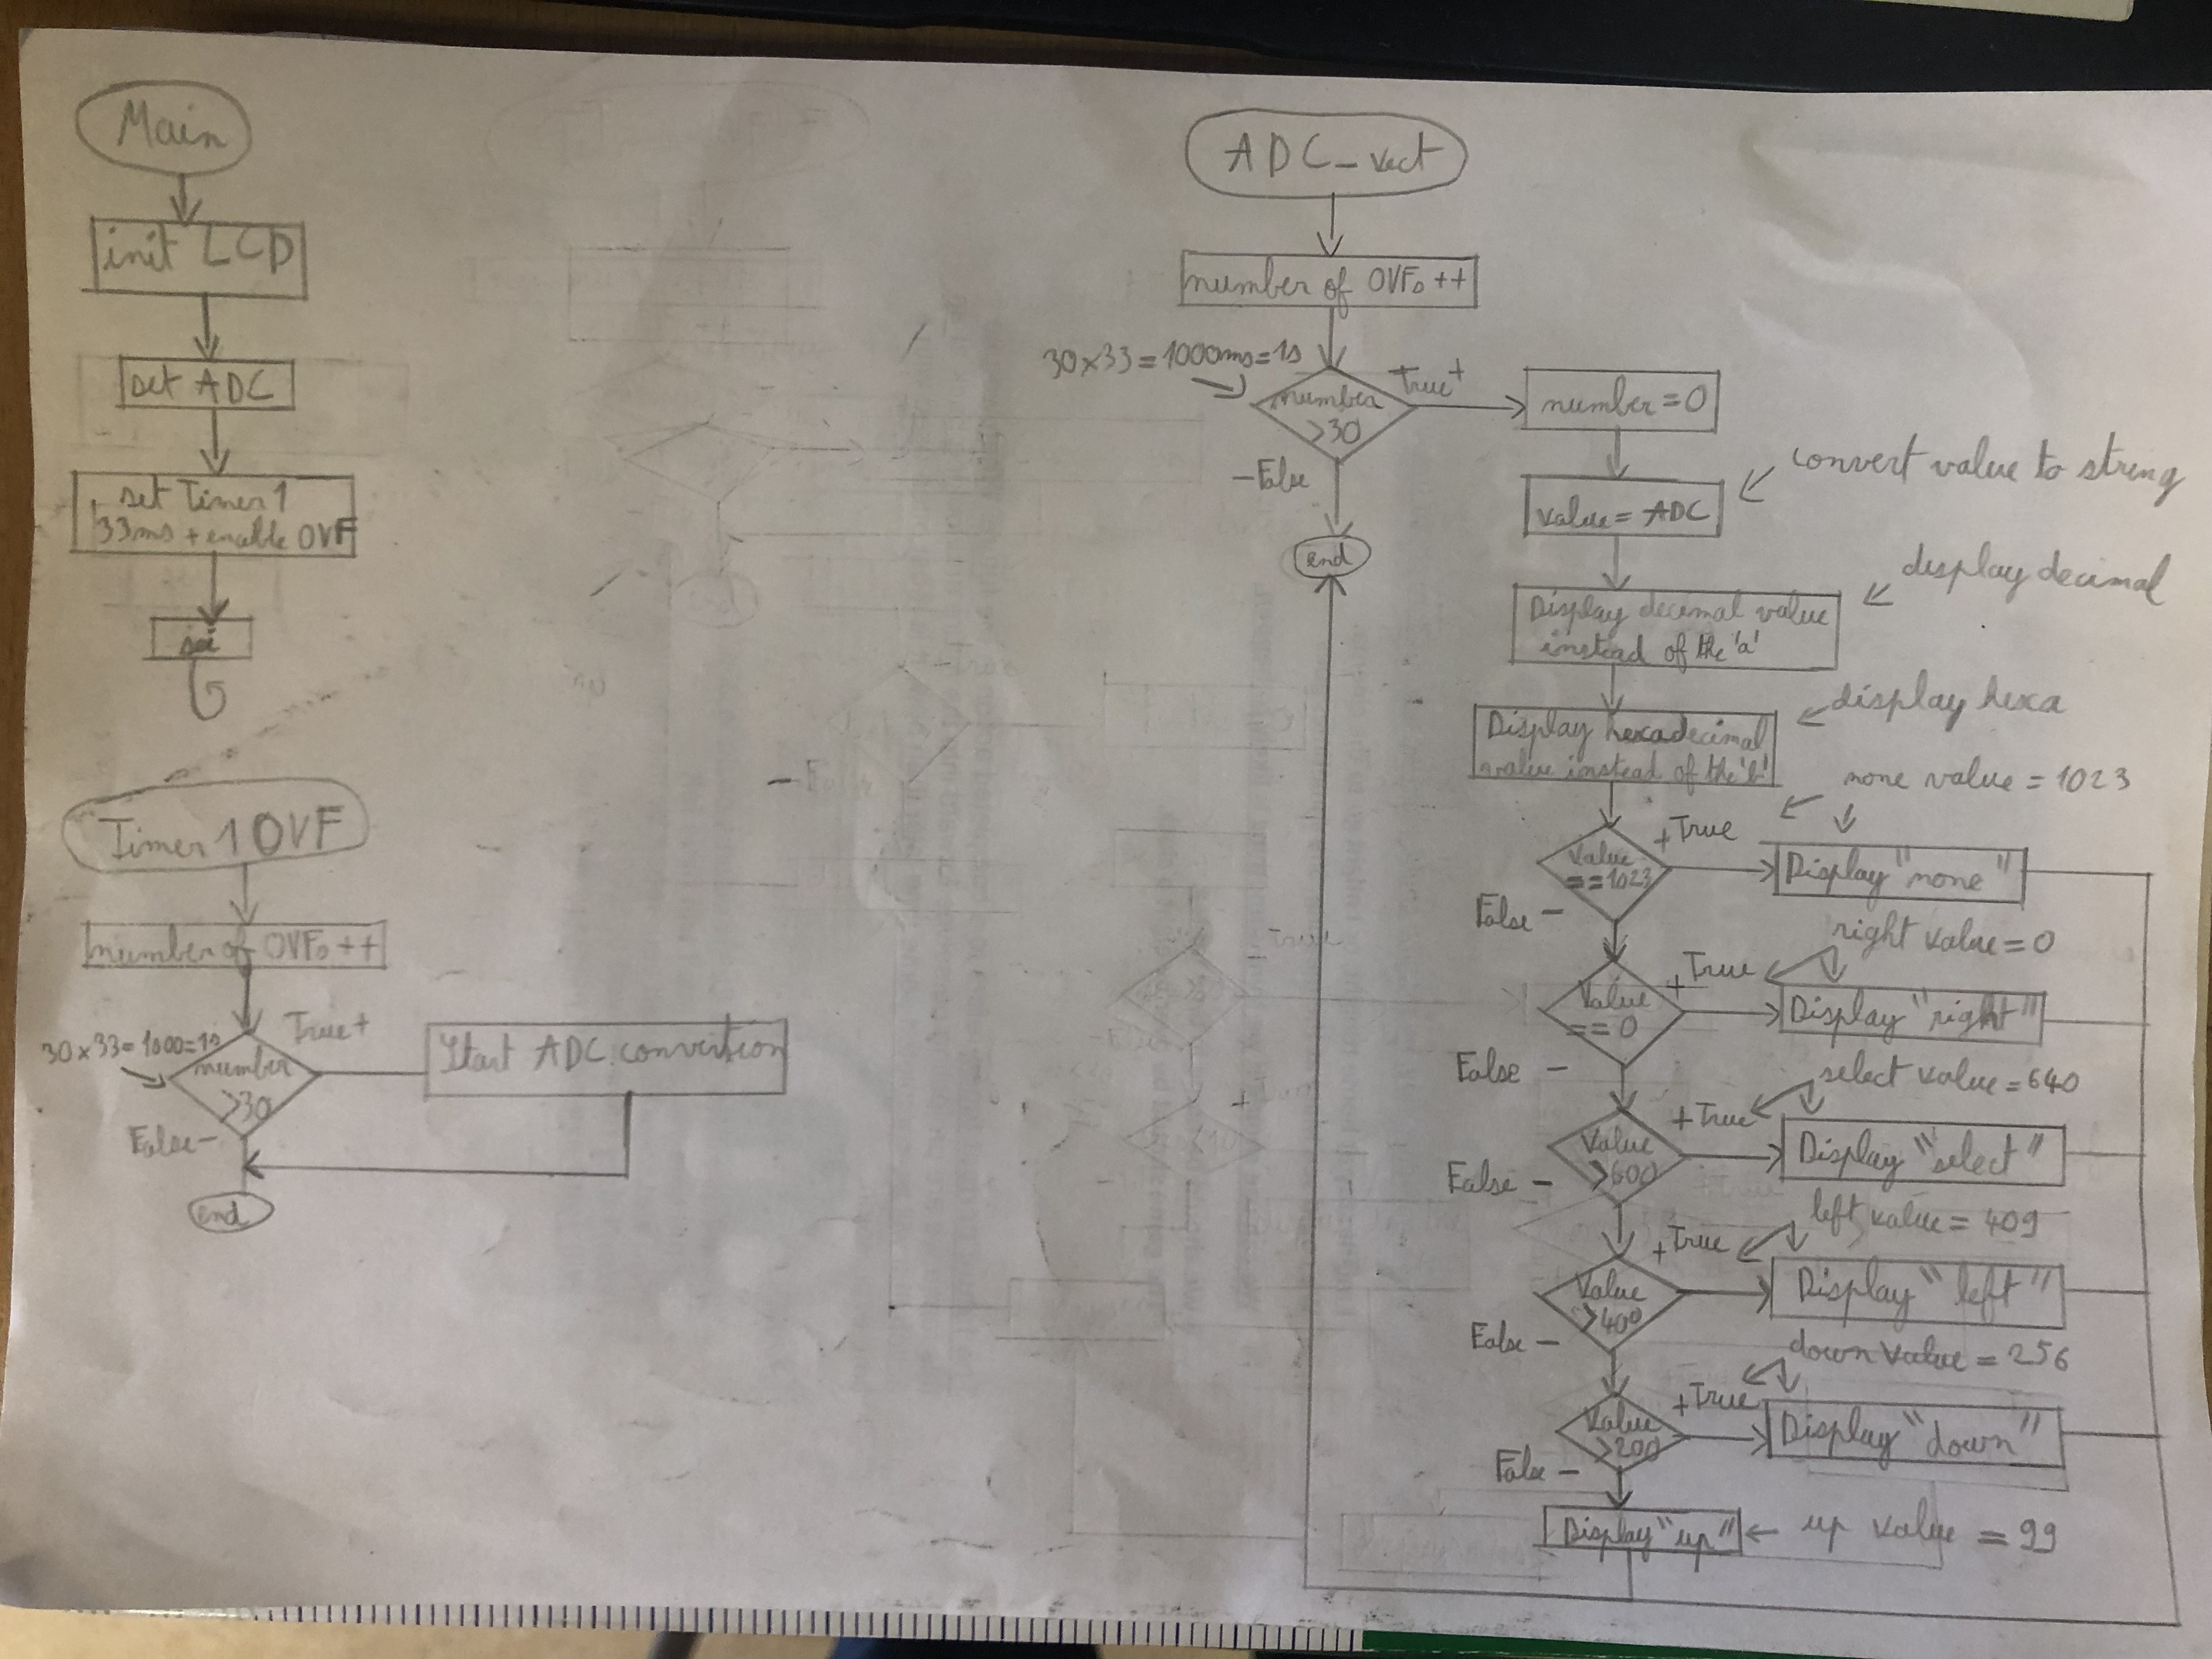 Main
init LCD
set ADC
set Timer 1
33ms + enable OVF
sei
Timer 1 OVF
number of OVFs ++
30x33=1000=1s
True +
number
>30
Start ADC convertion
False -
end
ADC_vect
number of OVFs ++
30x33=1000ms=1s
number
>30
True +
- False
end
number=0
convert value to string
value= ADC
display decimal
Display decimal value
instead of the 'a'
display hexa
Display hexadecimal
value instead of the 'b'
none value = 1023
+ True
Value
==1023
Display "none"
False -
right value = 0
+ True
Value
== 0
Display "right"
False -
select value = 640
+ True
Value
>600
Display "select"
False -
left value = 409
+ True
Value
>400
Display "left"
False -
down value = 256
+ True
Value
>200
Display "down"
False -
Display "up"
up value = 99